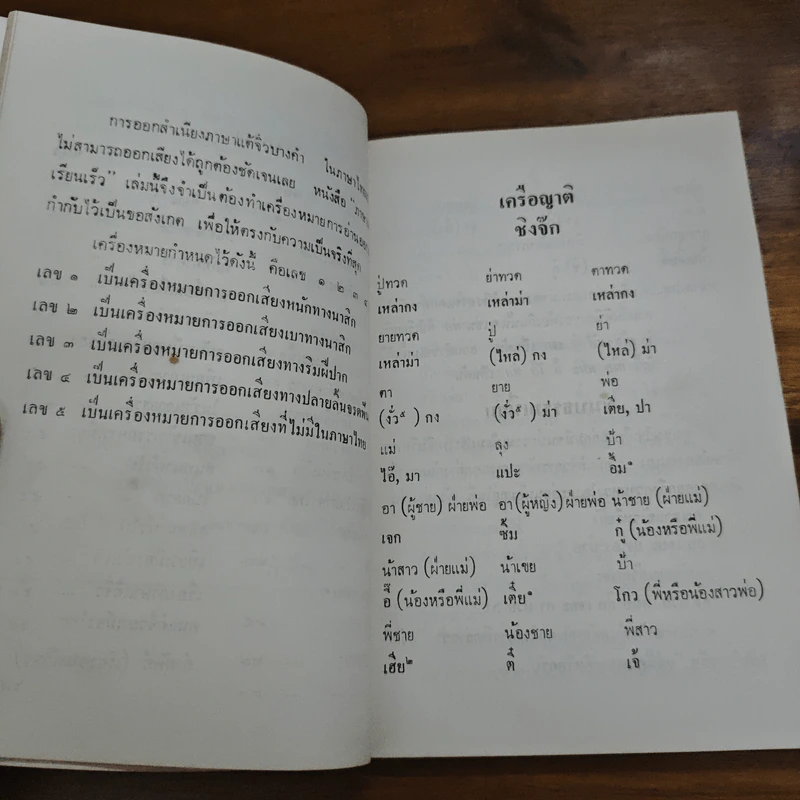 การออกสำเนียงภาษาแต้จิ๋วบางคำ ในภาษาไทย
ไม่สามารถออกเสียงได้ถูกต้องชัดเจนเลย หนังสือ "ภาษา
เรียนเร็ว" เล่มนี้จึงจำเป็นต้องทำเครื่องหมายการอ่านออก
กำกับไว้เป็นขอสังเกต เพื่อให้ตรงกับความเป็นจริงที่สุด
เครื่องหมายกำหนดไว้ดังนี้ คือเลข ๑ ๒ ๓ ๔
เลข ๑ เป็นเครื่องหมายการออกเสียงหนักทางนาสิก
เลข ๒ เป็นเครื่องหมายการออกเสียงเบาทางนาสิก
เลข ๓ เป็นเครื่องหมายการออกเสียงทางริมฝีปาก
เลข ๔ เป็นเครื่องหมายการออกเสียงทางปลายลิ้นจรดฟัน
เลข ๕ เป็นเครื่องหมายการออกเสียงที่ไม่มีในภาษาไทย
เครือญาติ
ชิงจ๊ก
ปู่ทวด ย่าทวด ตาทวด
เหล่ากง เหล่าม่า เหล่ากง
ยายทวด ปู่ ย่า
เหล่าม่า (ไหล่) กง (ไหล่) ม่า
ตา ยาย พ่อ
(งั่ว๕ ) กง (งั่ว๕ ) ม่า เตี่ย, ปา
แม่ ลุง ป้า
ไอ๊, มา แปะ อึ้ม
อา (ผู้ชาย) ฝ่ายพ่อ อา (ผู้หญิง) ฝ่ายพ่อ น้าชาย (ฝ่ายแม่)
เจก ซิ้ม กู๋ (น้องหรือพี่แม่)
น้าสาว (ฝ่ายแม่) น้าเขย ป้า
อี๊ (น้องหรือพี่แม่) เตี๋ย โกว (พี่หรือน้องสาวพ่อ)
พี่ชาย น้องชาย พี่สาว
เฮีย๒ ตี๋ เจ้